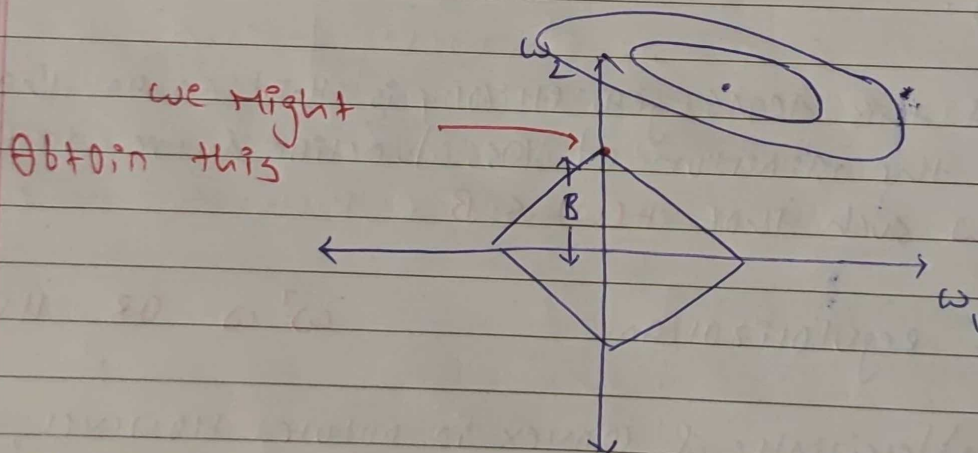 ω2
we Might
Obtain this
B
ω1